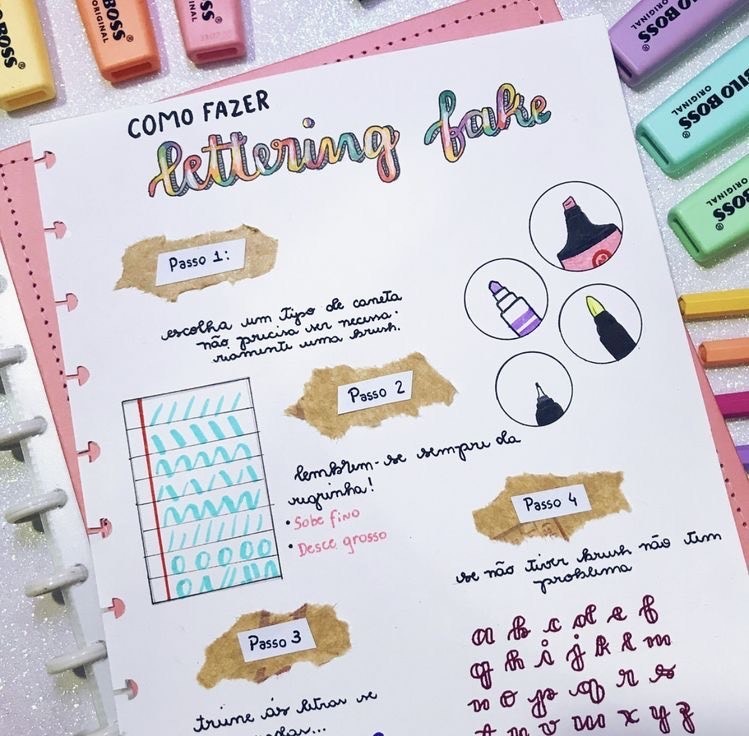 BOSS
BOSS
ORIGINAL
BOSS
BOSS
ORIGINAL
BOSS
ORIGINAL
BOSS
ORIGINAL
COMO FAZER
lettering fake
Passo 1:
escolha um tipo de caneta
não precisa ser necessa-
riamente uma brush.
Passo 2
lembrem-se sempre da
regrinha!
• Sobe fino
• Desce grosso
Passo 3
treine ás letras se
Passo 4
se não tiver brush não tem
problema
a b c d e f
g h i j k l m
n o p q r s
t u v w x y z